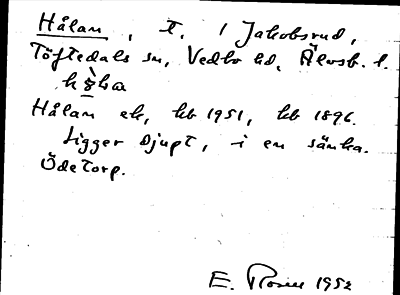 Hålan, t. / Jakobsrud,
Töftedals sn, Vedbo hd, Älvsb. l.
Hålan ek, kb 1951, kb 1896.
Ligger djupt, i en sänka.
Ödetorp.
E. Rosell 1952